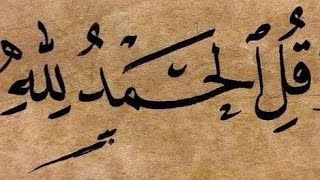 قُلِ ٱلْحَمْدُ لِلّٰهِ